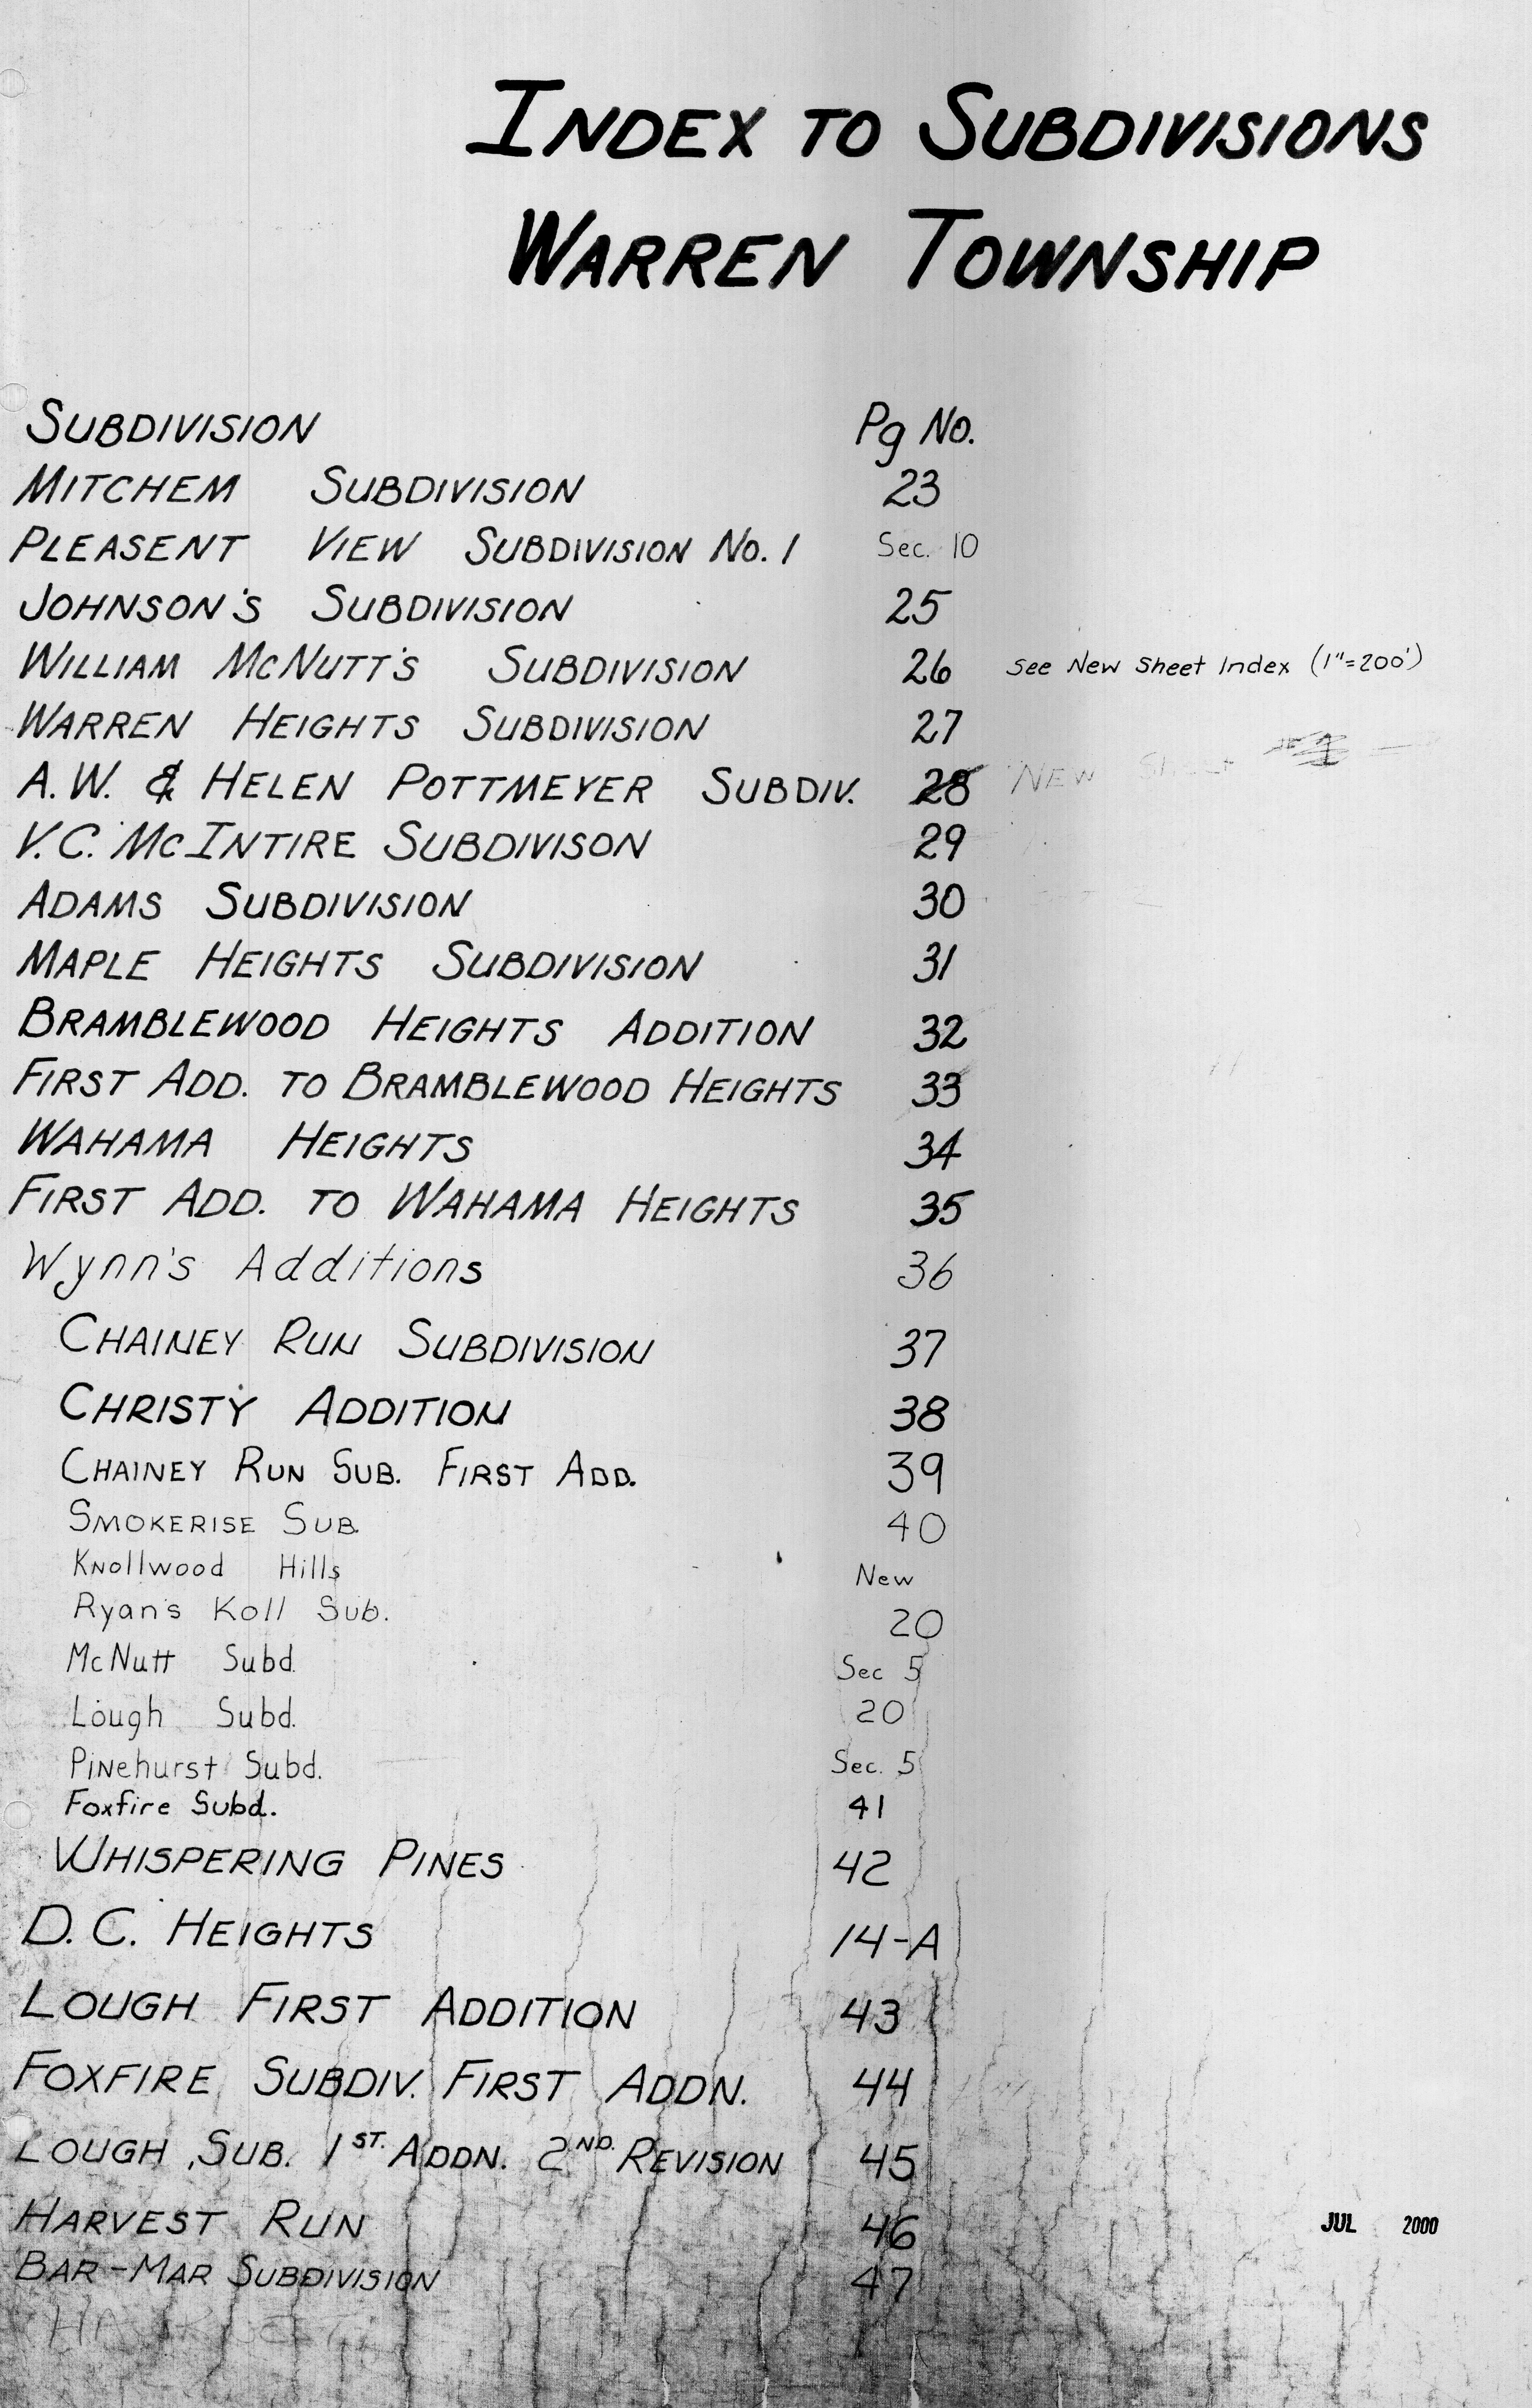 INDEX TO SUBDIVISIONS
WARREN TOWNSHIP
SUBDIVISION Pg No.
MITCHEM SUBDIVISION 23
PLEASENT VIEW SUBDIVISION No. 1 Sec. 10
JOHNSON'S SUBDIVISION 25
WILLIAM McNUTT'S SUBDIVISION 26 See New Sheet Index (1"=200')
WARREN HEIGHTS SUBDIVISION 27
A.W. & HELEN POTTMEYER SUBDIV. 28 NEW Sheet
V.C. McINTIRE SUBDIVISON 29
ADAMS SUBDIVISION 30
MAPLE HEIGHTS SUBDIVISION 31
BRAMBLEWOOD HEIGHTS ADDITION 32
FIRST ADD. TO BRAMBLEWOOD HEIGHTS 33
WAHAMA HEIGHTS 34
FIRST ADD. TO WAHAMA HEIGHTS 35
Wynn's Additions 36
CHAINEY RUN SUBDIVISION 37
CHRISTY ADDITION 38
CHAINEY RUN SUB. FIRST ADD. 39
SMOKERISE SUB. 40
Knollwood Hills New
Ryan's Koll Sub. 20
McNutt Subd. Sec 5
Lough Subd. 20
Pinehurst Subd. Sec. 5
Foxfire Subd. 41
WHISPERING PINES 42
D.C. HEIGHTS 14-A
LOUGH FIRST ADDITION 43
FOXFIRE SUBDIV. FIRST ADDN. 44
LOUGH SUB. 1ST. ADDN. 2ND. REVISION 45
HARVEST RUN 46
JUL 2000
BAR-MAR SUBDIVISION 47